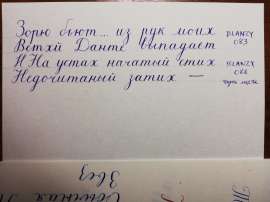 Зорю бьют... из рук моих
Ветхй Данте выпадает
На устах начатый стих
Недочитаный затих —
DLANZY
083
DLANZY
Звез